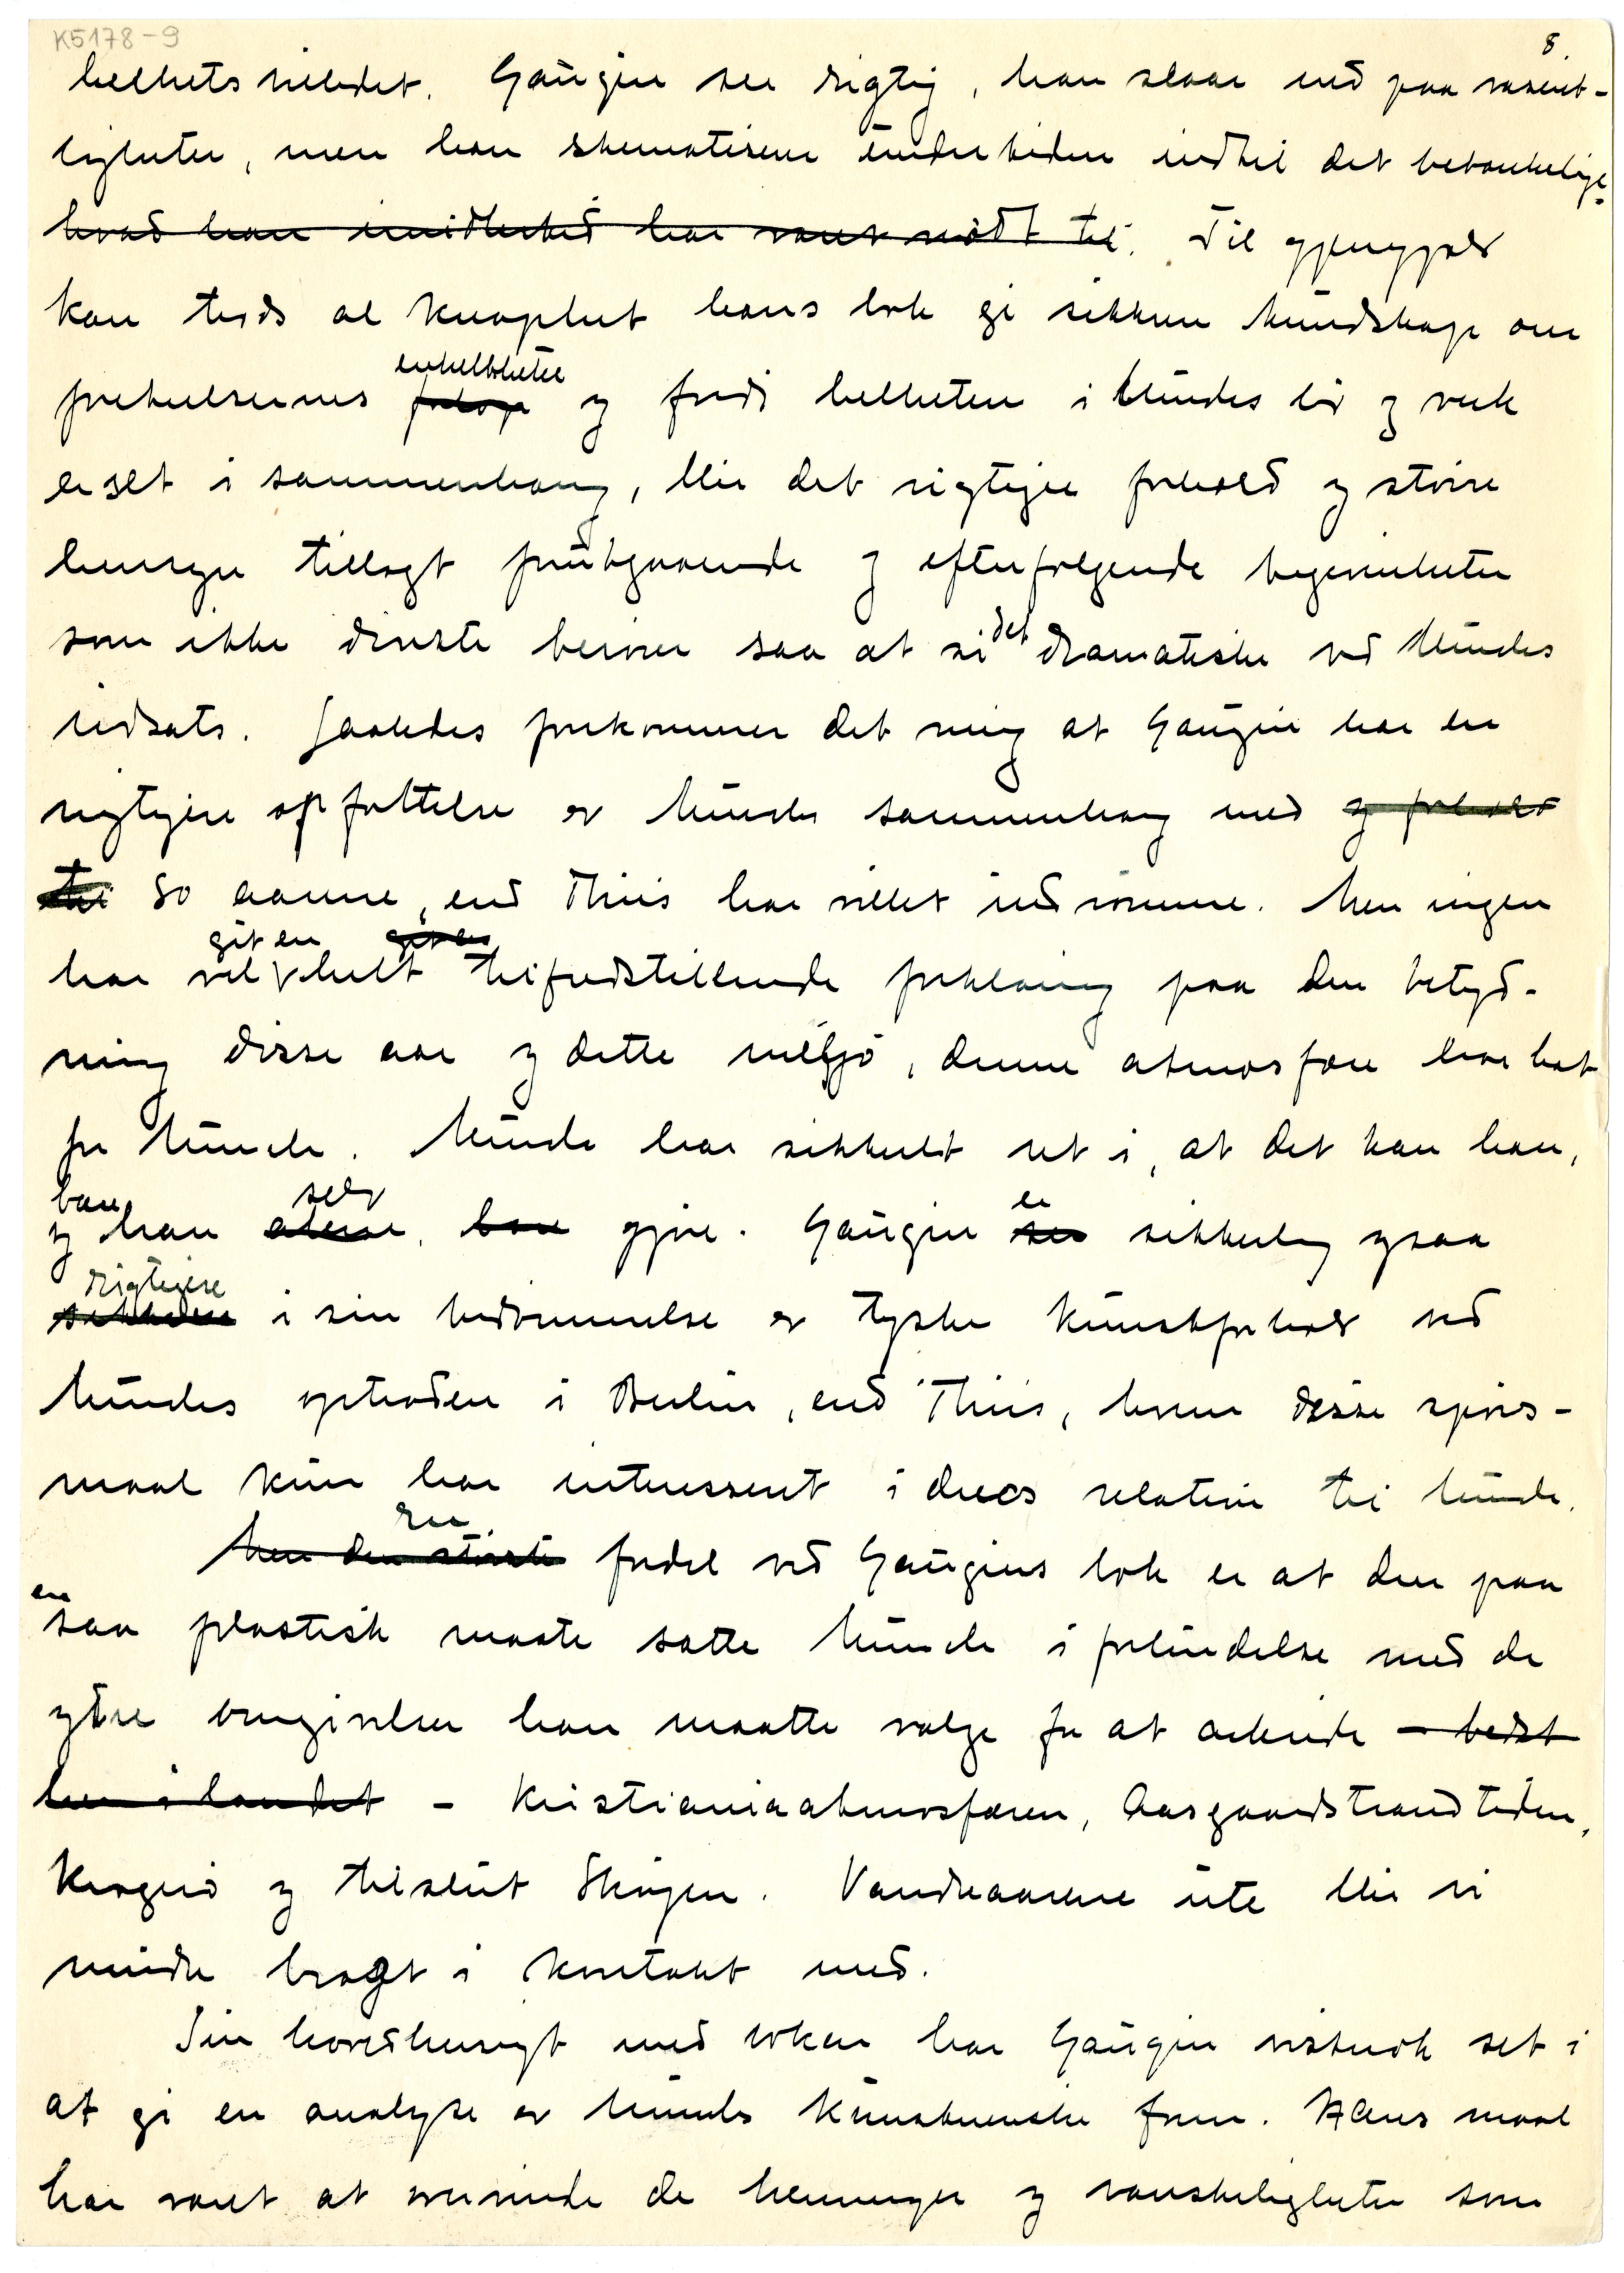 K5178-9
8.
helhetsbilledet. Gaugin ser rigtig, han slaar ned paa væsent-
ligheter, men han skematiserer undertiden indtil det betænkelige.
hvad han imidlertid har været nødt til. Til gjengjæld
kan trods al knaphet hans bok gi sikker kundskap om
enkeltheter
foreteelsernes og fordi helheten i Munchs liv og verk
er set i sammenhæng, blir det rigtigere forhold og større
hensyn tillagt forutgaaende og efterfølgende begivenheter
som ikke direkte berører saa at si det dramatiske ved Munchs
indsats. Saaledes forekommer det mig at Gaugin har en
rigtigere opfattelse av Munchs sammenhæng med og forhold
til 80 aarene, end Thiis har villet indrømme. Men ingen
git en
har vel helt tilfredstillende forklaring paa den betyd-
ning disse aar og dette miljø, denne atmosfære har hat
for Munch. Munch har sikkert ret i, at det kan han,
bare selv er
og han alene, bare gjøre. Gaugin ser sikkerlig ogsaa
rigtigere
sikkrere i sin bedømmelse av tyske kunstforhold ved
Munchs optræden i Berlin, end Thiis, hvem disse spørs-
maal kun har interessert i deres relation til Munch.
Men den største fordel ved Gaugins bok er at den paa
en
saa plastisk maate sætte Munch i forbindelse med de
ydre omgivelser han maatte vælge for at arbeide – bedst
her i landet – Kristianiaatmosfæren, Aasgaardstrandtiden,
Kragerø og tilslut Skøyen. Vandreaarene ute blir vi
mindre bragt i kontakt med.
Sin hovedhensigt med boken har Gaugin vistnok set i
at gi en analyse av Munchs kunstneriske form. Hans maal
har været at overvinde de hemninger og vanskeligheter som